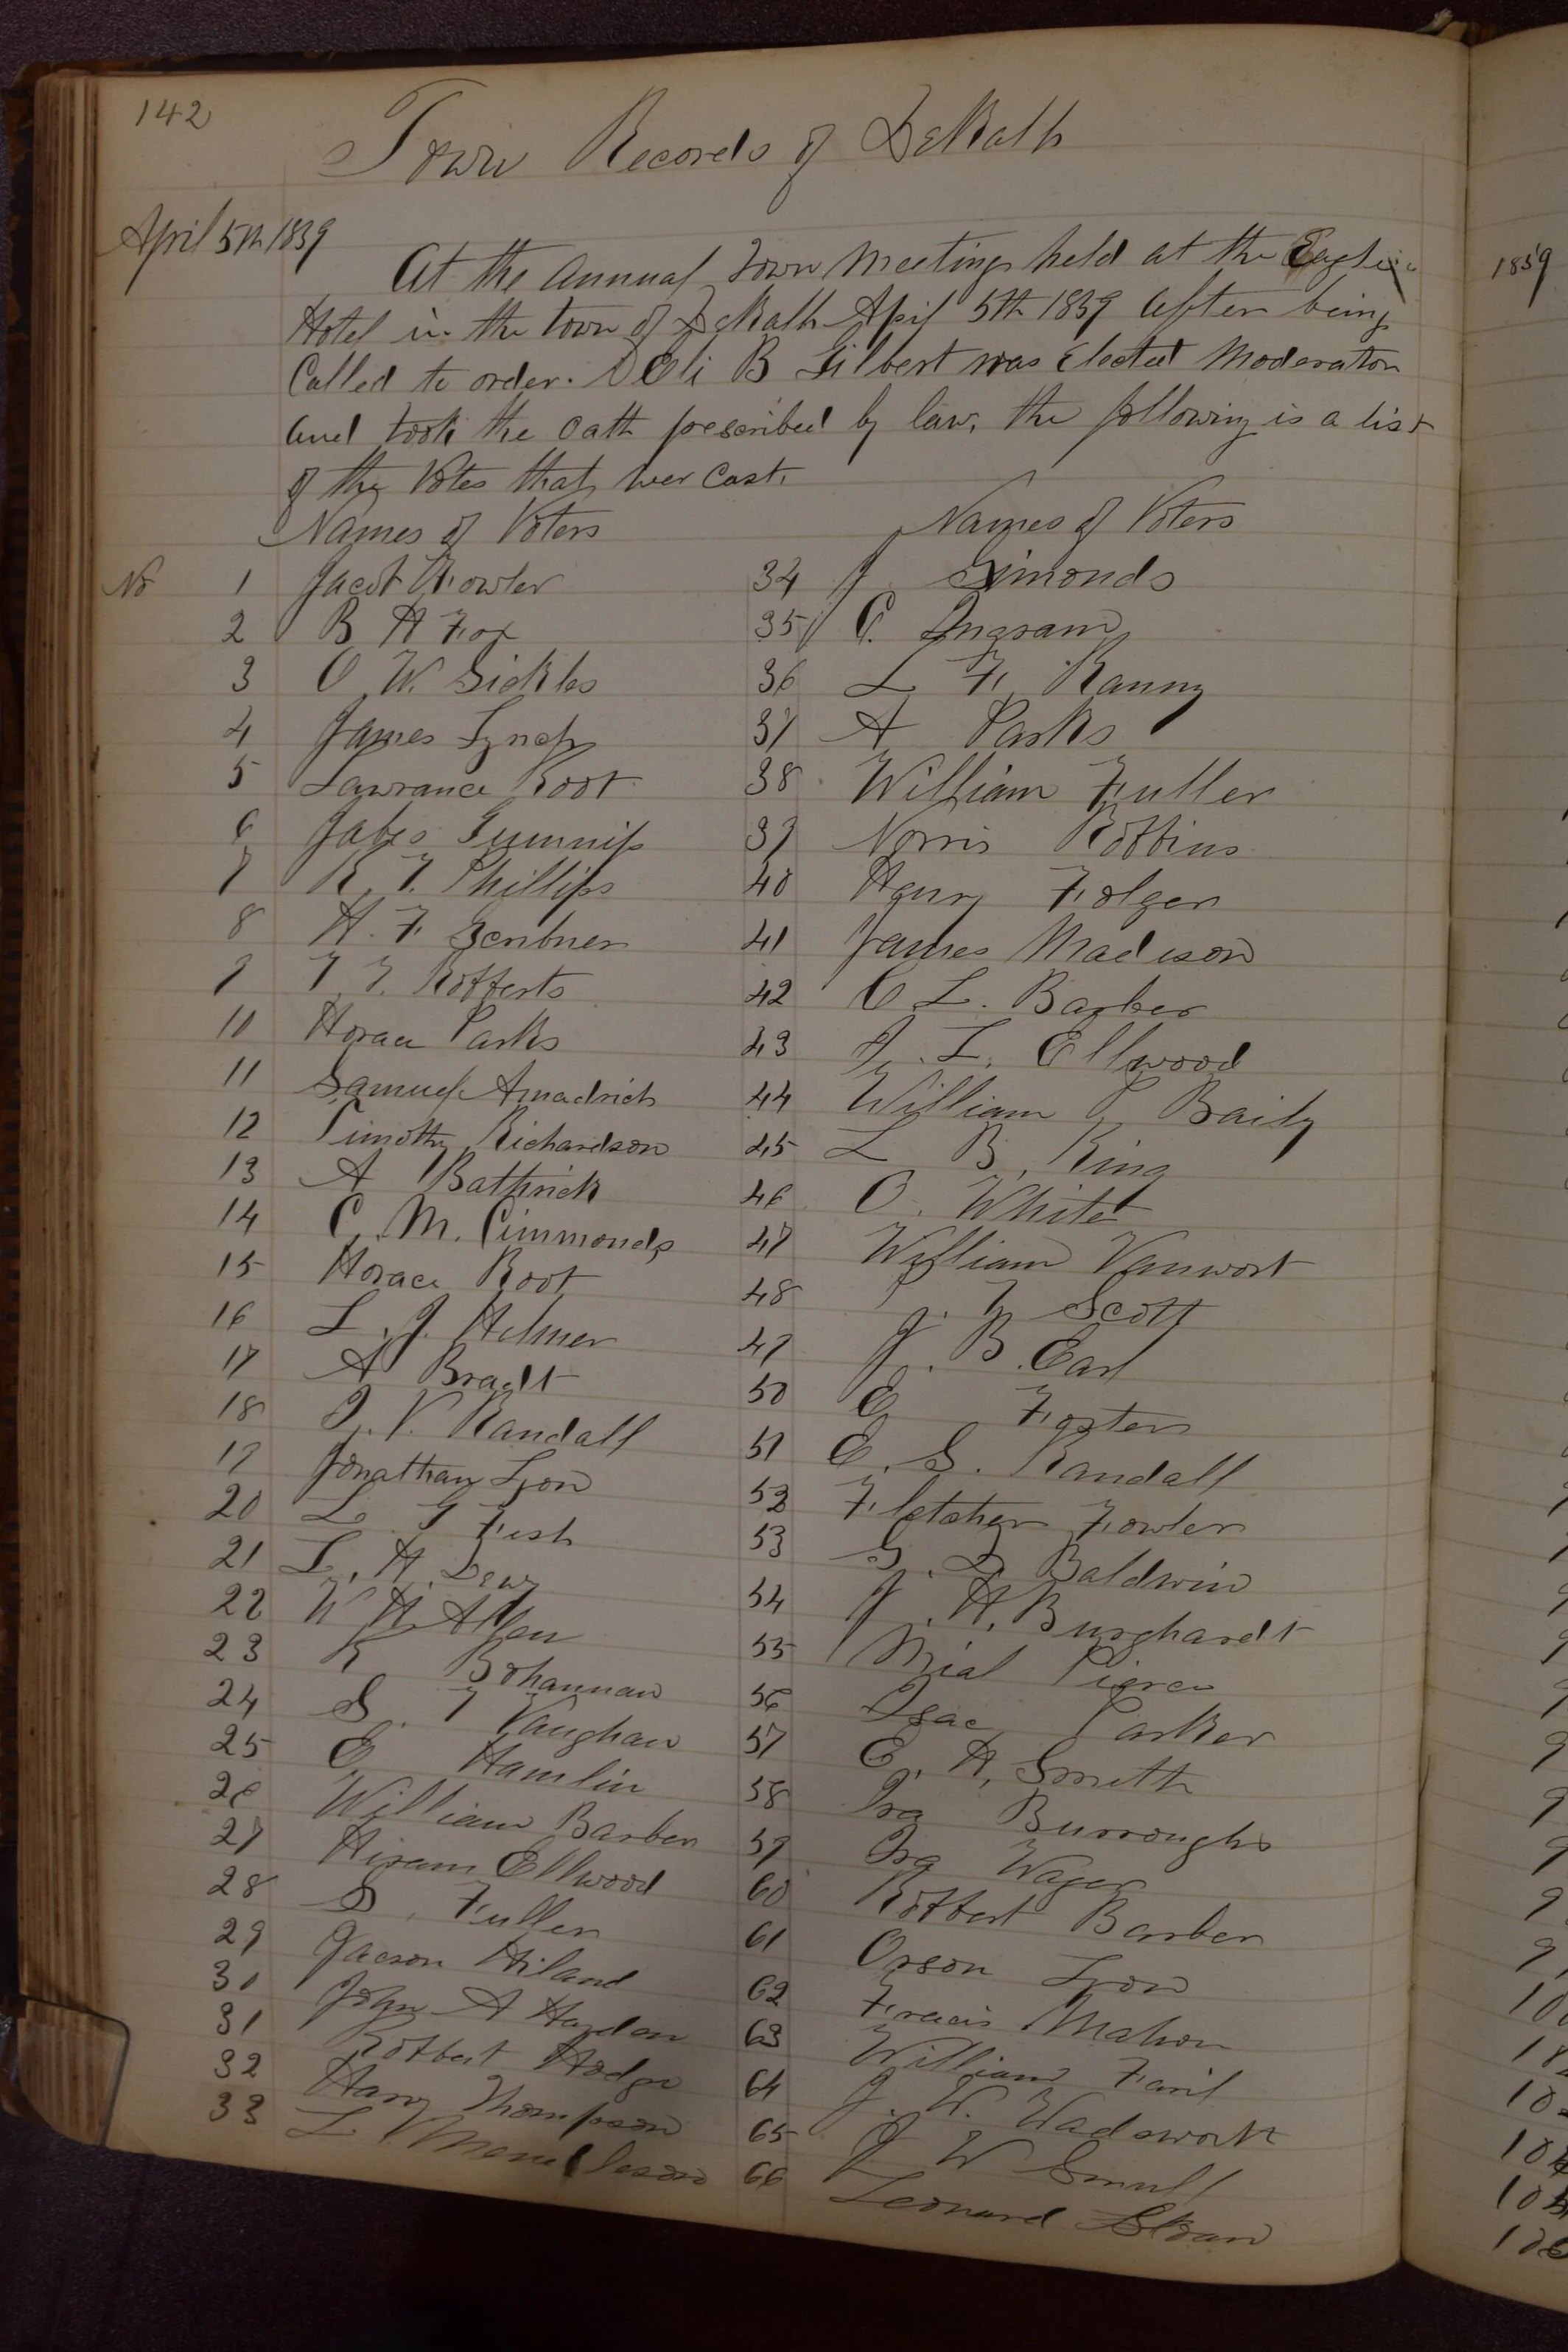 142
Town Records of DeKalb
April 5th 1859
At the Annual Town Meeting held at the Eagle
Hotel in the town of DeKalb April 5th 1859 after being
Called to order. Eli B Gilbert was Elected Moderator
and took the Oath prescribed by law, the following is a list
of the Votes that wer Cast.
Names of Voters
No
1 Jacob Fowler
2 B H Fox
3 O W. Sickles
4 James Lynch
5 Lawrance Root
6 Jabes Gumnip
7 R. T. Phillips
8 H. F. Scribner
9 T. T. Robberts
10 Horace Parks
11 Samuel
12 Timothy Richardson
13 A Bathrick
14 C. M. Cimmonds
15 Horace Root
16 L. J. Helmer
17 A Bradt
18 I. V. Randall
19 Jonathan Lyon
20 L T Fish
21 L. H. Dewy
22 W H Allen
23 R Bohannan
24 S. T Vaughan
25 E Hamlin
26 William Barber
27 Hiram Ellwood
28 D. Fuller
29 Jacson Hiland
30 John A Haydon
31 Robbert Hodge
32 Harry Thompson
33 L
Names of Voters
34 J. Simonds
35 C. Ingram
36 L F. Ranny
37 A Parks
38 William Fuller
39 Norris Robbins
40 Henry Folger
41 James Madison
42 C L. Barber
43 I. L. Ellwood
44 William P Baily
45 L B. King
46 O. White
47 William Vanwort
48 J. T Scott
49 J. B. Earl
50 E Foster
51 E. S. Randall
52 Fletcher Fowler
53 G. D Baldwin
54 J. H. Burghardt
55 Nial Pierce
56 Isac Parker
57 E. H. Smith
58 Ira Burroughs
59 Ira Wager
60 Robbert Barber
61 Orson Lyon
62 Fracis Mahon
63 William
64 J. W. Wadsworth
65 J W Small
66 Leonard Sloan
1859